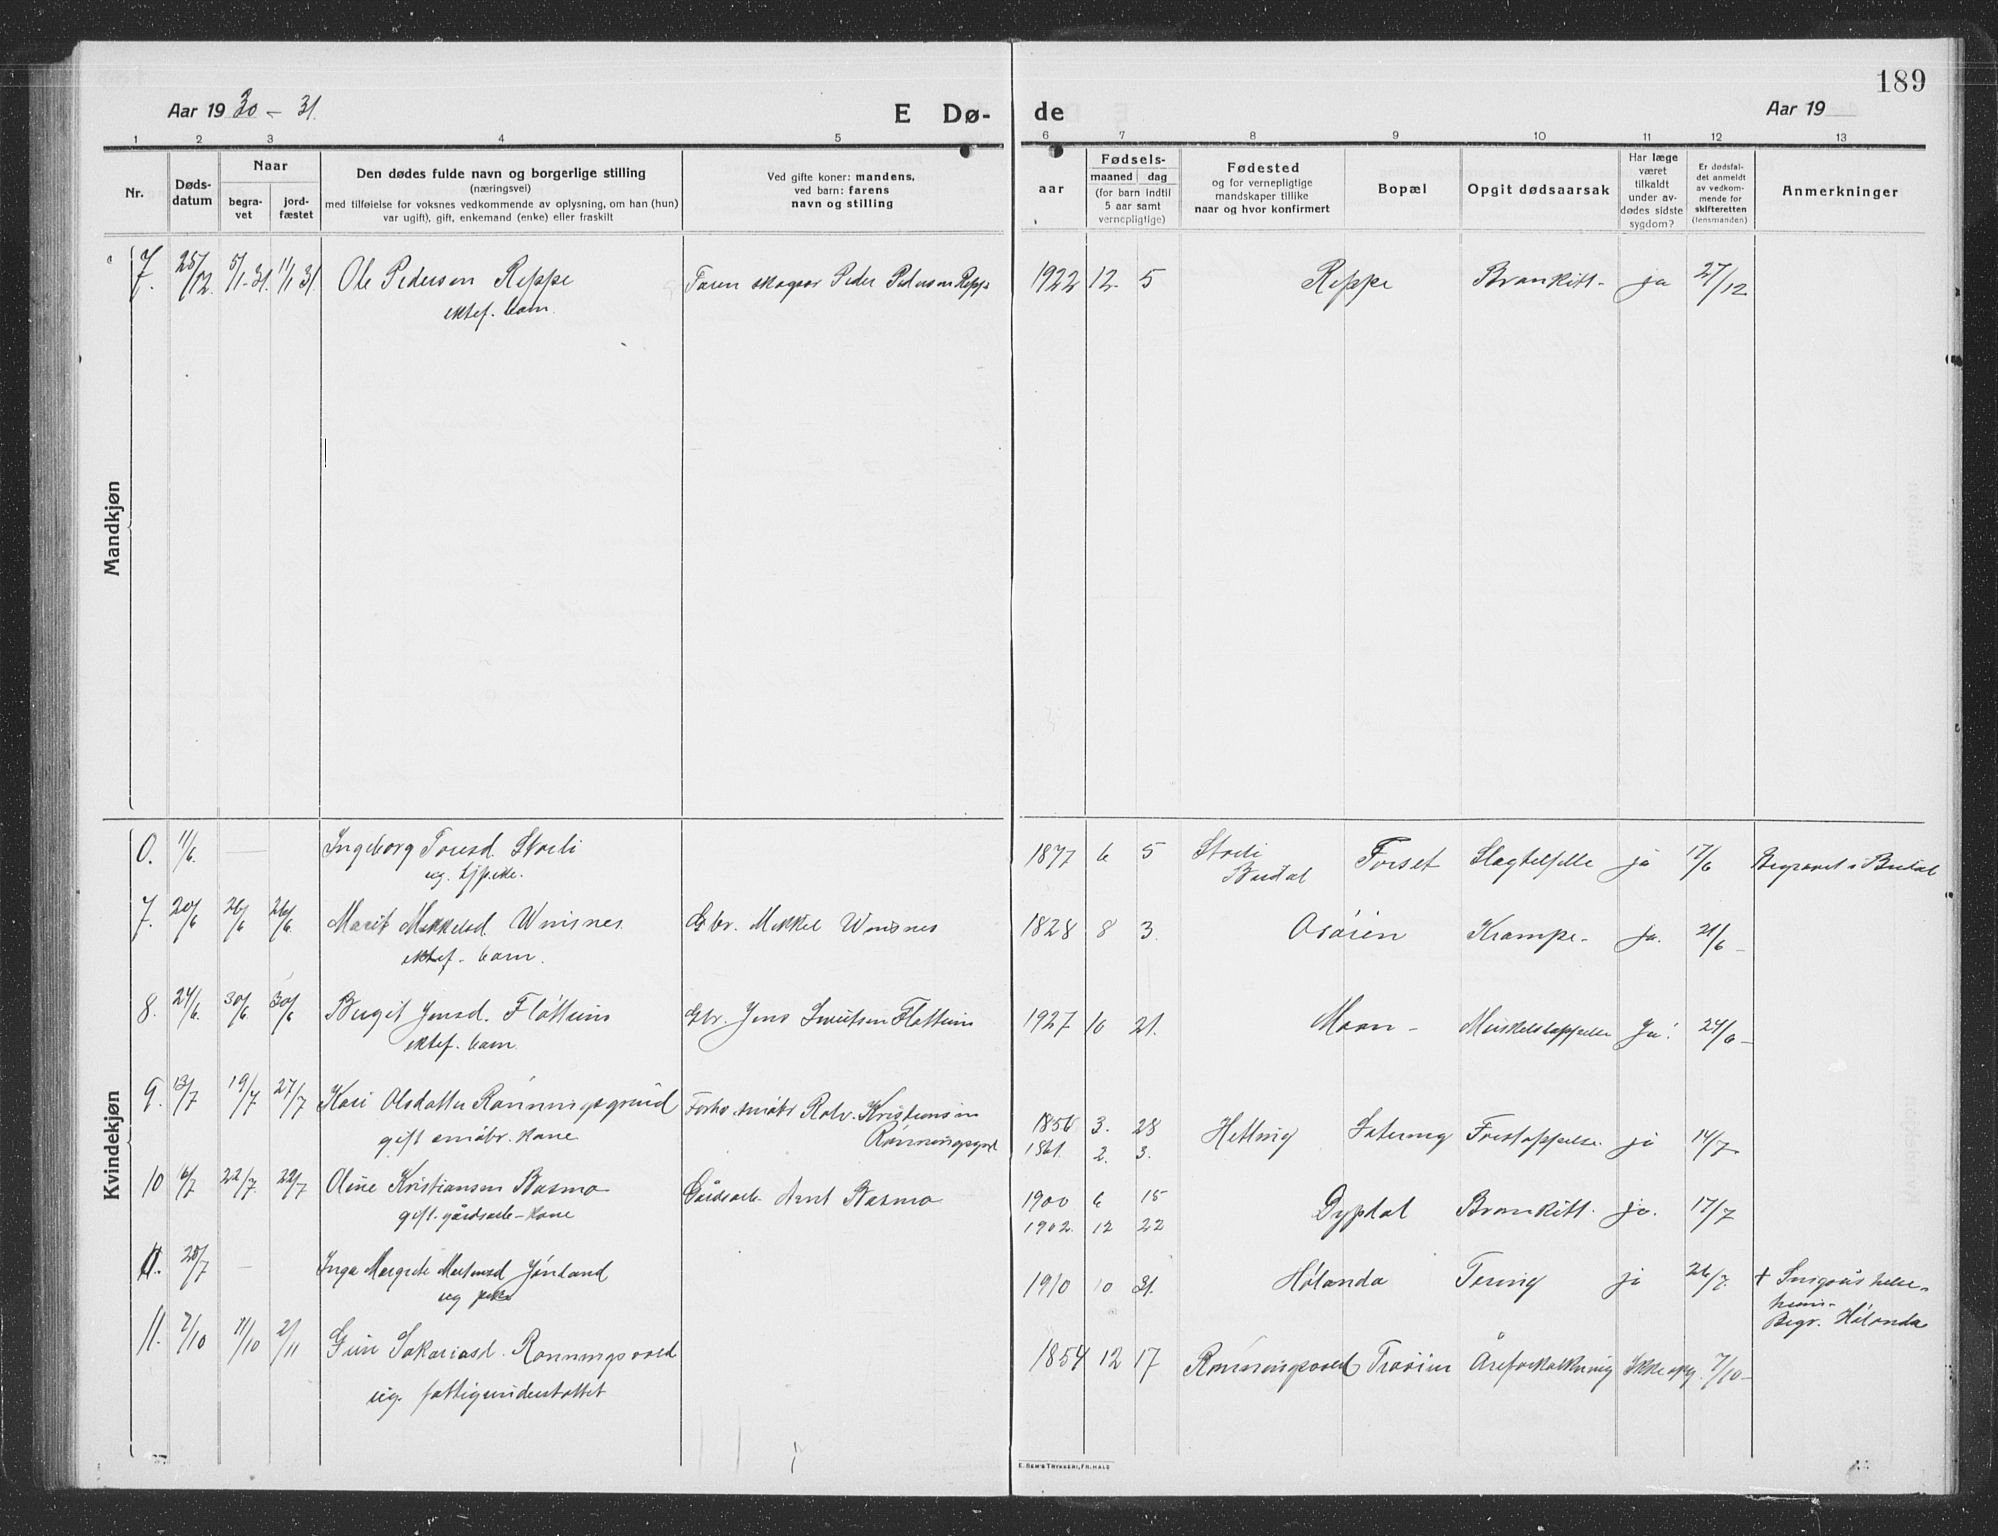 189
Aar 19 30 - 31. E Dø- de Aar 19
1 2 3 4 5 6 7 8 9 10 11 12 13
Nr.
Døds-
datum
Naar
begra-
vet
jord-
fæstet
Den dødes fulde navn og borgerlige stilling
(næringsvei)
med tilføielse for voksnes vedkommende av oplysning, om han (hun)
var ugift), gift, enkemand (enke) eller fraskilt
Ved gifte koner: mandens,
ved barn: farens
navn og stilling
aar
Fødsels-
maaned dag
(for barn indtil
5 aar samt
vernepligtige)
Fødested
og for vernepligtige
mandskaper tillike
naar og hvor konfirmert
Bopæl
Opgit dødsaarsak
Har læge
været
tilkaldt
under av-
dødes sidste
sygdom?
Er dødsfal-
det anmeldt
av vedkom-
mende for
skifteretten
(lensmanden)
Anmerkninger
Mandkjøn
7. 25/12. 5/1-31. 11/1 31. Ole Pedersen Reppe Faren skogsar Peder Pedersen Reppe 1922 12 5 Reppe Bronkitt- ja 27/12
ektef. barn.
Kvindekjøn
0. 11/6. — Ingeborg Toresd. Storli 1877 6 5 Storli Forset Slagtilfelle ja 17/6 Begravet i Budal
ug. tjp.
Budal
7. 20/6 26/6 26/6. Marit Mikkelsd. Winsnes Gbr. Mikkel Winsnes 1828 8 3. Krampe- ja. 21/6 -
ektef. barn.
8. 24/6. 30/6. 30/6 Birgit Jensd. Fløttum Gbr. Jens Fløttum 1927 10 21. Moan - Ja! 24/6 -
ektef. barn.
9. 13/7 19/7 27/7 Kari Olsdatter Rønningsgrind Forhv. småbr. Kristiansen
gift småbr. kone
1856 3. 28
1861. 2. 3.
Hetting ja 14/7
10 6/7 22/7. 22/7 Oline Kristiansen Basmo Gårdsarb. Arnt Basmo
gift. gårdsarb-kone
1900 6 15
1902. 12 22
Dypdal Bronkitt. ja. 17/7
25/7 - Inga Margrete Mortensd
ug
1910 10 31. Hølanda ja 26/7.
Begr. Hølanda
11. 7/10 11/10 2/11 Guri Sakariasd. 1854 12 17 Åreforkalkning Ikke opg. 7/10 -
ug. fattigunderstøttet
E. SEM'S TRYKKERI, FR.HALD